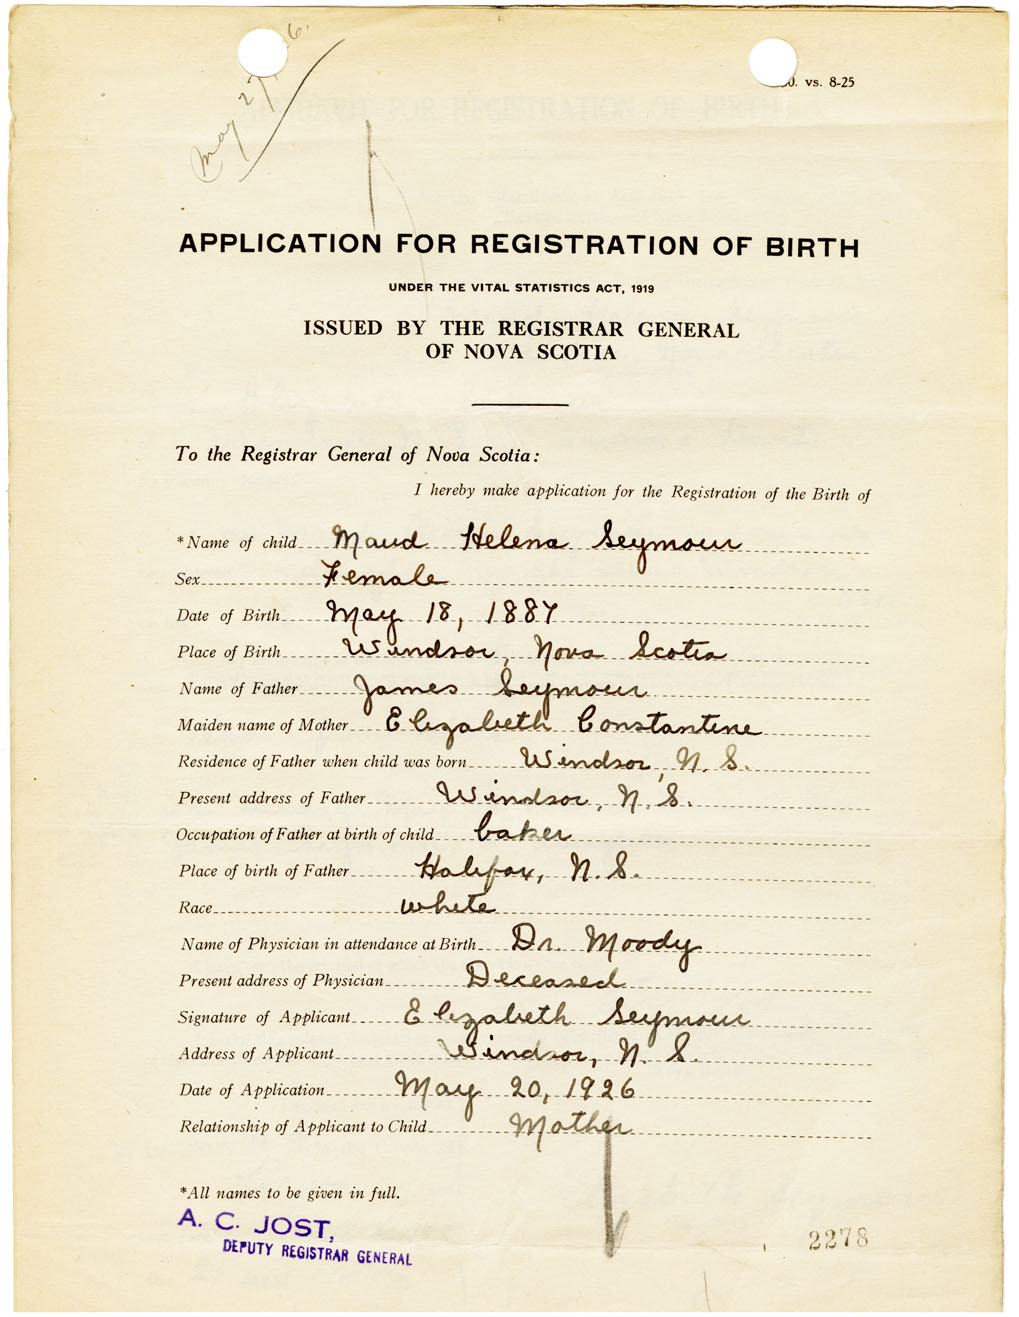 May 27, 26.
0. vs. 8-25
APPLICATION FOR REGISTRATION OF BIRTH
UNDER THE VITAL STATISTICS ACT, 1919
ISSUED BY THE REGISTRAR GENERAL
OF NOVA SCOTIA
To the Registrar General of Nova Scotia:
I hereby make application for the Registration of the Birth of
*Name of child Maud Helena Seymour
Sex Female
Date of Birth May 18, 1887
Place of Birth Windsor, Nova Scotia
Name of Father James Seymour
Maiden name of Mother Elizabeth Constantine
Residence of Father when child was born Windsor, N. S.
Present address of Father Windsor, N. S.
Occupation of Father at birth of child baker
Place of birth of Father Halifax, N. S.
Race white
Name of Physician in attendance at Birth Dr. Moody
Present address of Physician Deceased
Signature of Applicant Elizabeth Seymour
Address of Applicant Windsor, N. S.
Date of Application May 20, 1926
Relationship of Applicant to Child Mother
*All names to be given in full.
A. C. JOST,
DEPUTY REGISTRAR GENERAL
2278